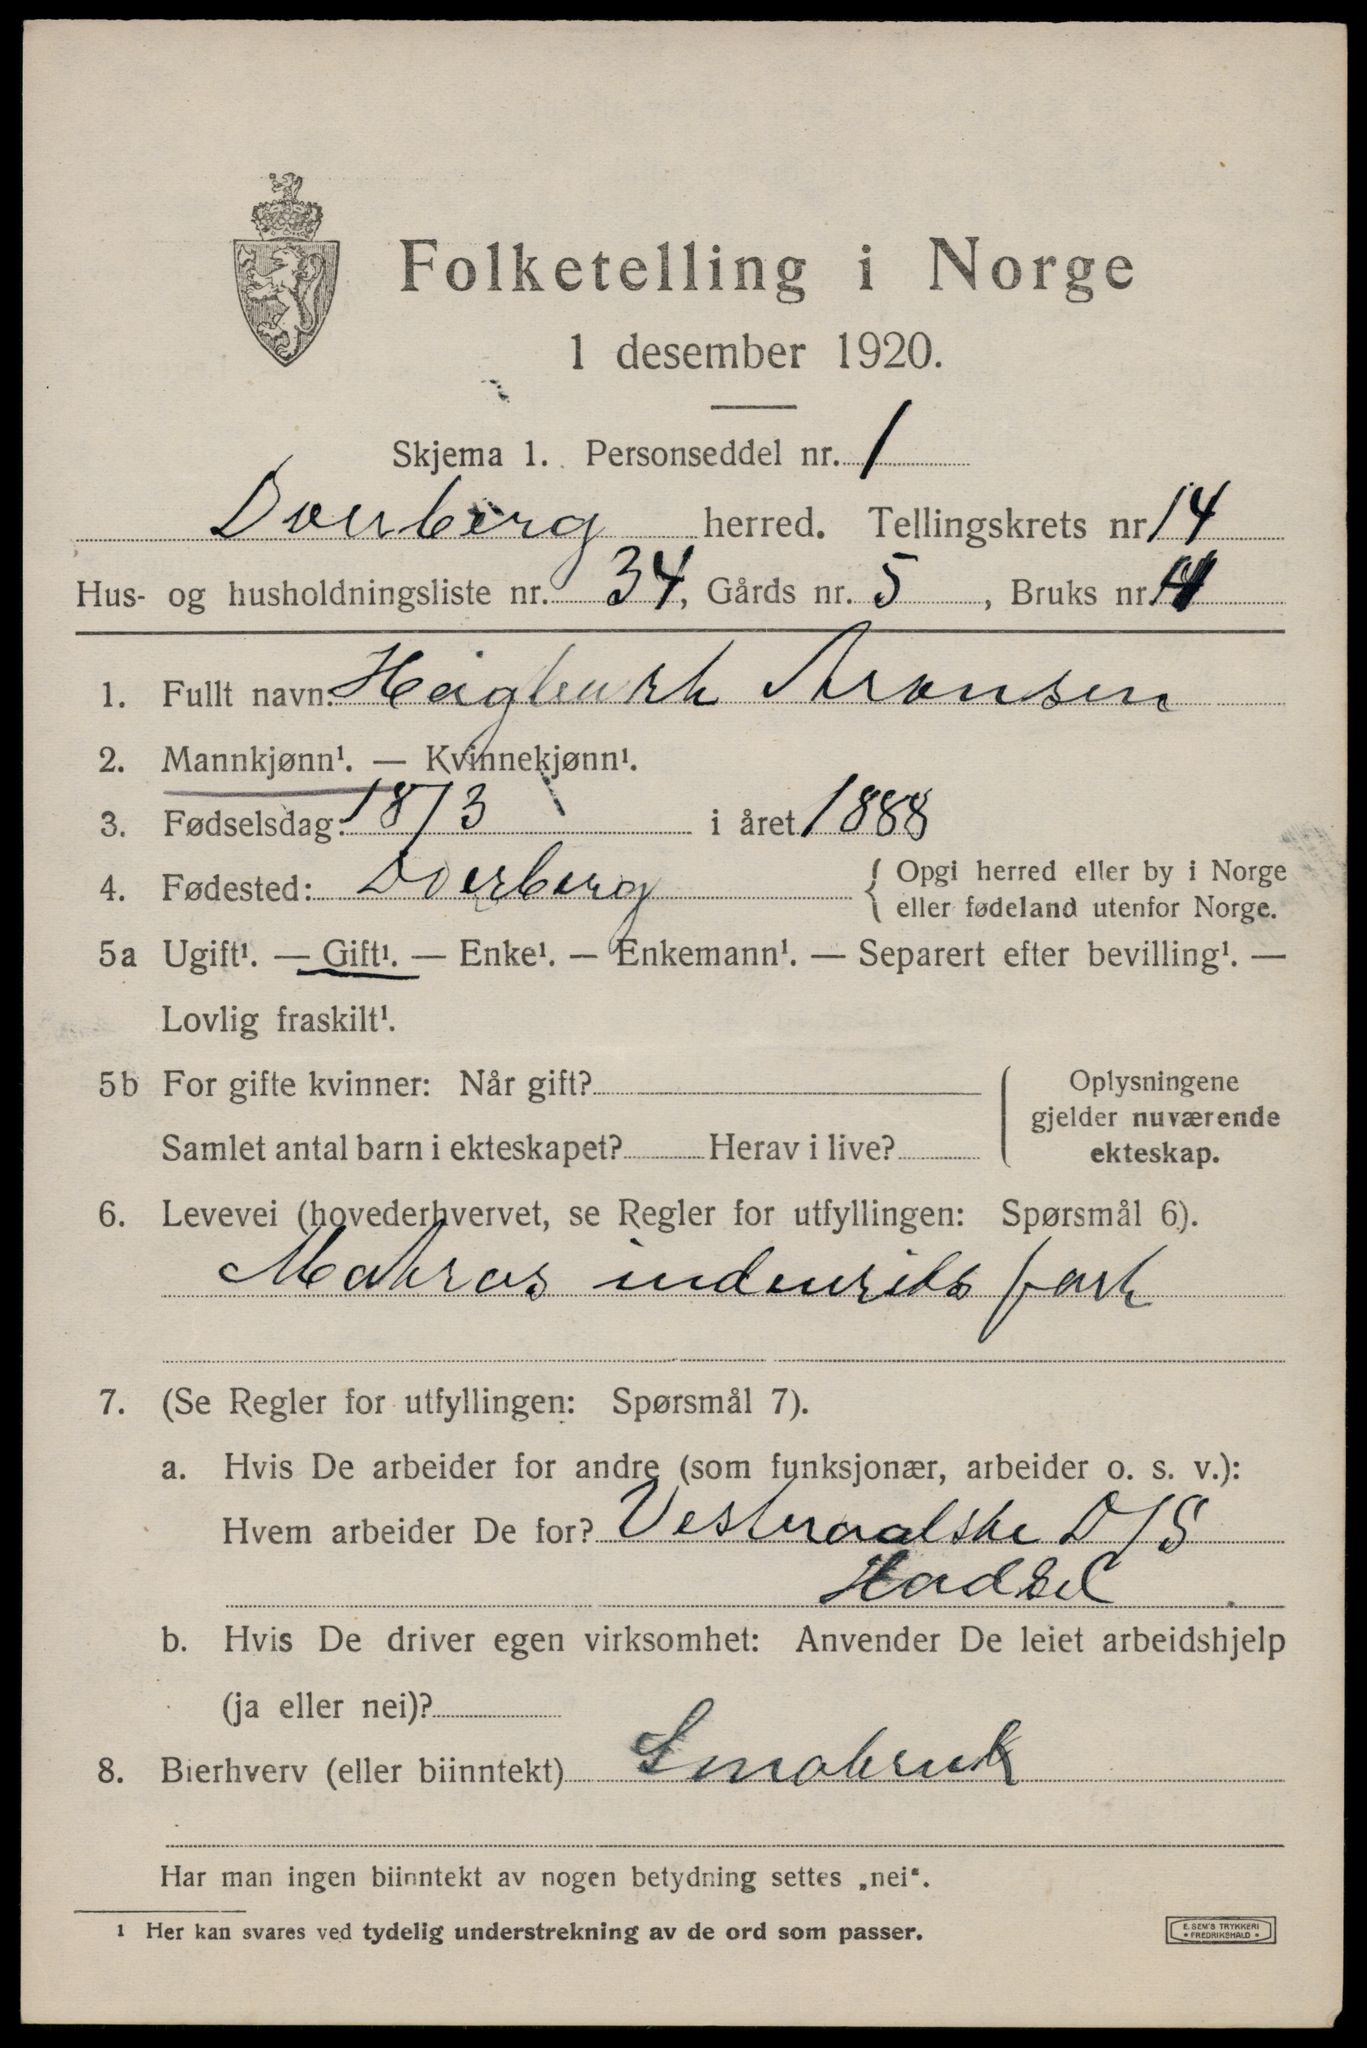 Folketelling i Norge
1 desember 1920.
Skjema 1. Personseddel nr. 1
Dverberg herred. Tellingskrets nr 14
Hus- og husholdningsliste nr. 34, Gårds nr. 5, Bruks nr.
1. Fullt navn: Aronsen
2. Mannkjønn¹. — Kvinnekjønn¹.
3. Fødselsdag: 18/3 i året 1888
4. Fødested: Dverberg { Opgi herred eller by i Norge
eller fødeland utenfor Norge.
5a Ugift¹. — Gift¹. — Enke¹. — Enkemann¹. — Separert efter bevilling¹. —
Lovlig fraskilt¹.
5b For gifte kvinner: Når gift? { Oplysningene
gjelder nuværende
Samlet antal barn i ekteskapet? Herav i live? ekteskap.
6. Levevei (hovederhvervet, se Regler for utfyllingen: Spørsmål 6).
Matros indenriks fart
7. (Se Regler for utfyllingen: Spørsmål 7).
a. Hvis De arbeider for andre (som funksjonær, arbeider o. s. v.):
Hvem arbeider De for? Vesteraalske D/S
Hadsel
b. Hvis De driver egen virksomhet: Anvender De leiet arbeidshjelp
(ja eller nei)?
8. Bierhverv (eller biinntekt) Smabruk
Har man ingen biinntekt av nogen betydning settes „nei“.
¹ Her kan svares ved tydelig understrekning av de ord som passer.
E. SEM'S TRYKKERI
• FREDRIKSHALD •